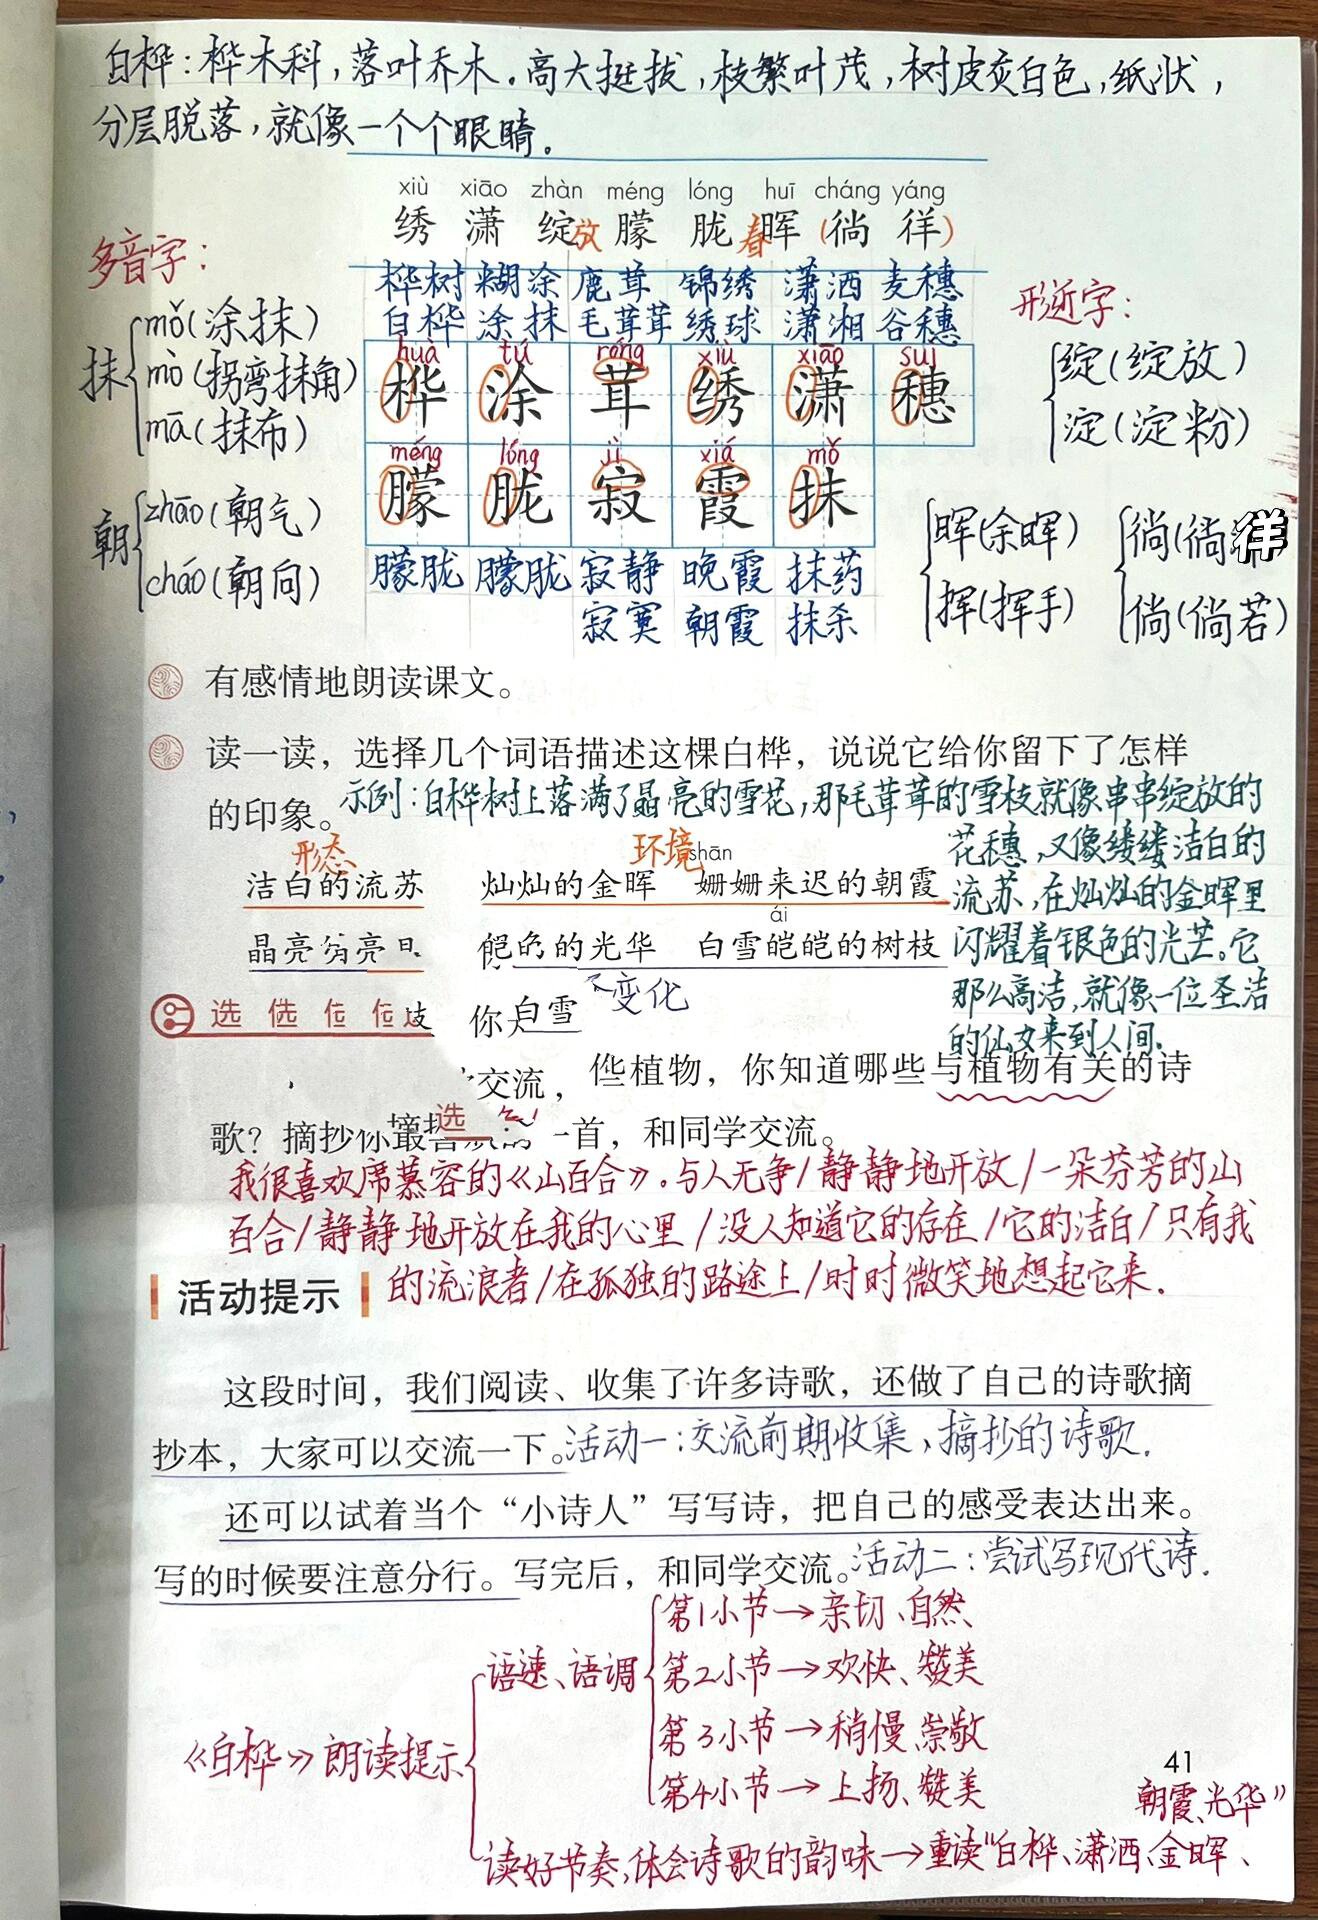 白桦：桦木科，落叶乔木。高大挺拔，枝繁叶茂，树皮灰白色，纸状，
分层脱落，就像一个个眼睛。
xiù xiāo zhàn méng lóng huī cháng yáng
绣 潇 绽放 朦 胧 春晖 (徜 徉)
多音字：
抹
mǒ(涂抹)
mò(拐弯抹角)
mā(抹布)
朝
zhāo(朝气)
cháo(朝向)
桦树 糊涂 鹿茸 锦绣 潇洒 麦穗
白桦 涂抹 毛茸茸 绣球 潇湘 谷穗
huà tú róng xiù xiāo suì
桦 涂 茸 绣 潇 穗
méng lóng jì xiá mǒ
朦 胧 寂 霞 抹
朦胧 朦胧 寂静 晚霞 抹药
寂寞 朝霞 抹杀
形近字：
绽(绽放)
淀(淀粉)
晖(余晖)
挥(挥手)
徜(徜徉
倘(倘若)
有感情地朗读课文。
读一读，选择几个词语描述这棵白桦，说说它给你留下了怎样
的印象。
示例：白桦树上落满了晶亮的雪花，那毛茸茸的雪枝就像串串绽放的
花穗，又像缕缕洁白的
流苏，在灿灿的金晖里
闪耀着银色的光芒。它
那么高洁，就像一位圣洁
的仙女来到人间.
形态 环境 shān
洁白的流苏 灿灿的金晖 姗姗来迟的朝霞
ái
晶亮 亮 的光华 白雪皑皑的树枝
变化
选 你 白雪
交流， 植物，你知道哪些与植物有关的诗
歌？摘抄你最 一首，和同学交流。
选
我很喜欢席慕容的《山百合》。与人无争/静静地开放/一朵芬芳的山
百合/静静地开放在我的心里/没人知道它的存在/它的洁白/只有我
的流浪者/在孤独的路途上/时时微笑地想起它来.
活动提示
这段时间，我们阅读、收集了许多诗歌，还做了自己的诗歌摘
抄本，大家可以交流一下。活动一：交流前期收集、摘抄的诗歌.
还可以试着当个“小诗人”写写诗，把自己的感受表达出来。
写的时候要注意分行。写完后，和同学交流。活动二：尝试写现代诗.
《白桦》朗读提示
语速、语调
第1小节→亲切、自然
第2小节→欢快、赞美
第3小节→稍慢、崇敬
第4小节→上扬、赞美
读好节奏，体会诗歌的韵味→重读“白桦、潇洒、金晖、
朝霞、光华”
41